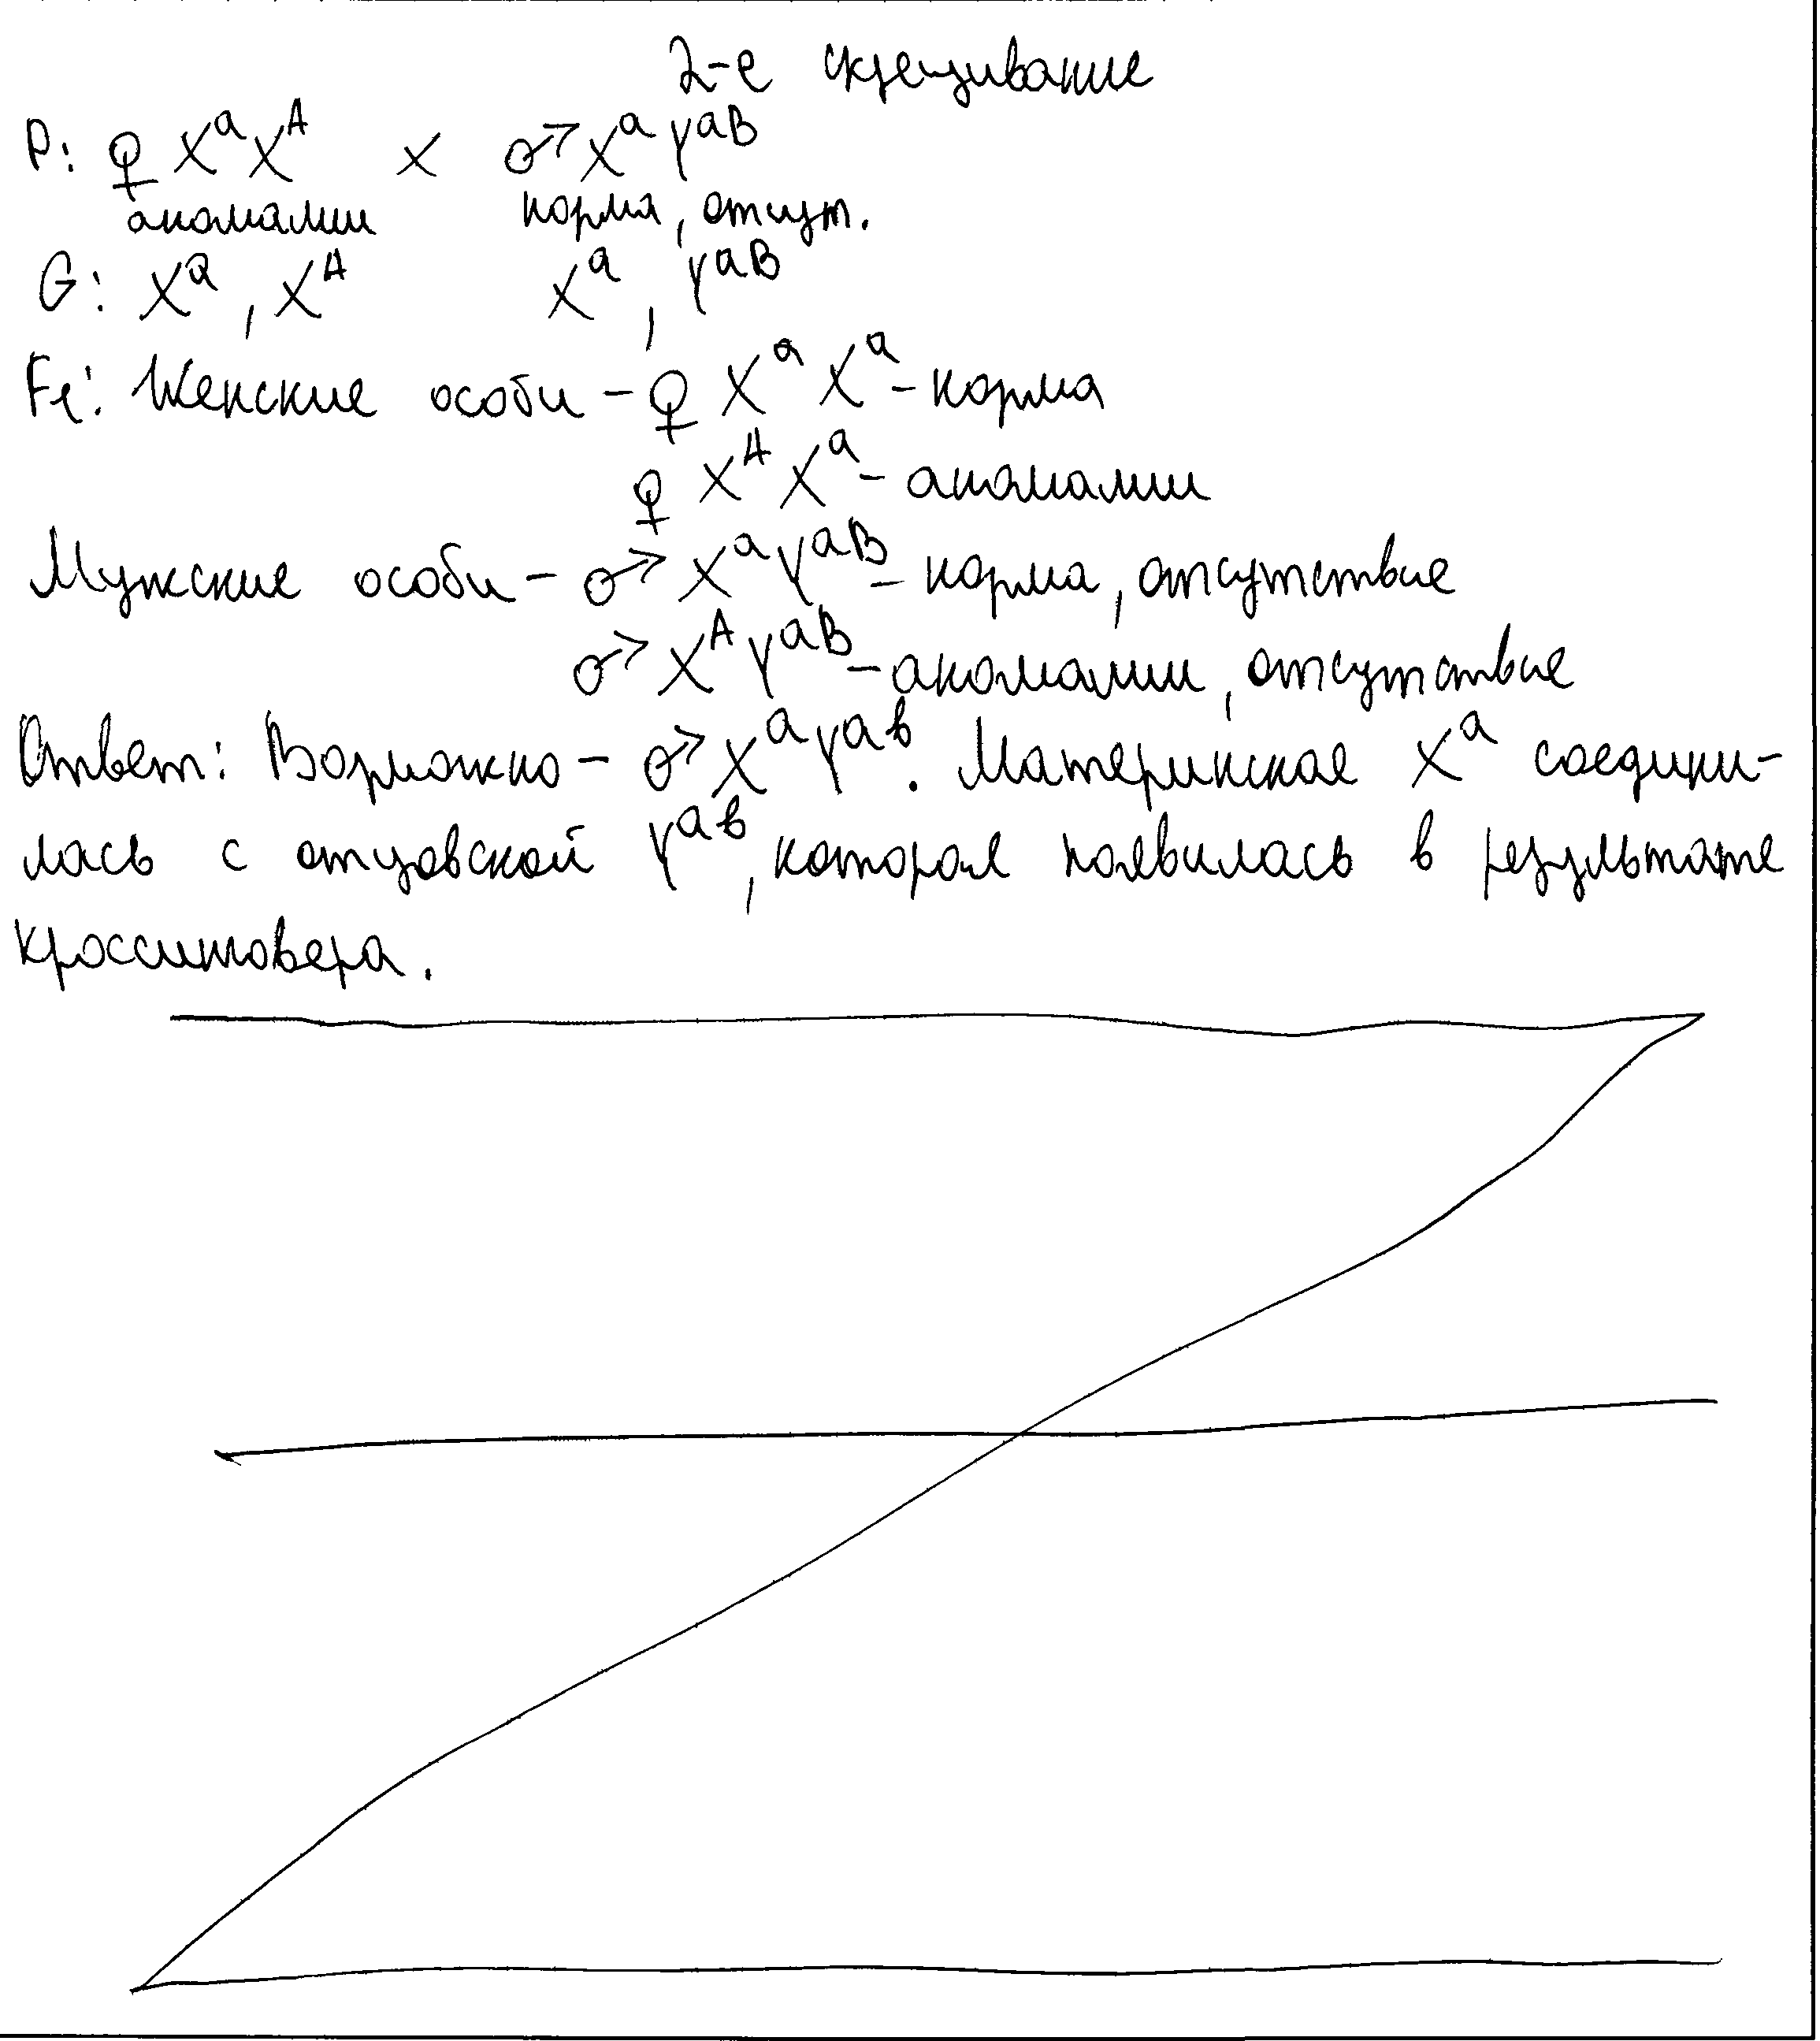 2-е скрещивание
P: ♀ XᵃXᴬ × ♂ XᵃYᵃᴮ
аномалии норма, отсут.
G: Xᵃ, Xᴬ Xᵃ, Yᵃᴮ
F₁: Женские особи - ♀ XᵃXᵃ - норма
♀ XᴬXᵃ - аномалии
Мужские особи - ♂ XᵃYᵃᴮ - норма, отсутствие
♂ XᴬYᵃᴮ - аномалии, отсутствие
Ответ: Возможно - ♂ XᵃYᵃᵇ. Материнская Xᵃ соедини-
лась с отцовской Yᵃᵇ, которая появилась в результате
кроссинговера.